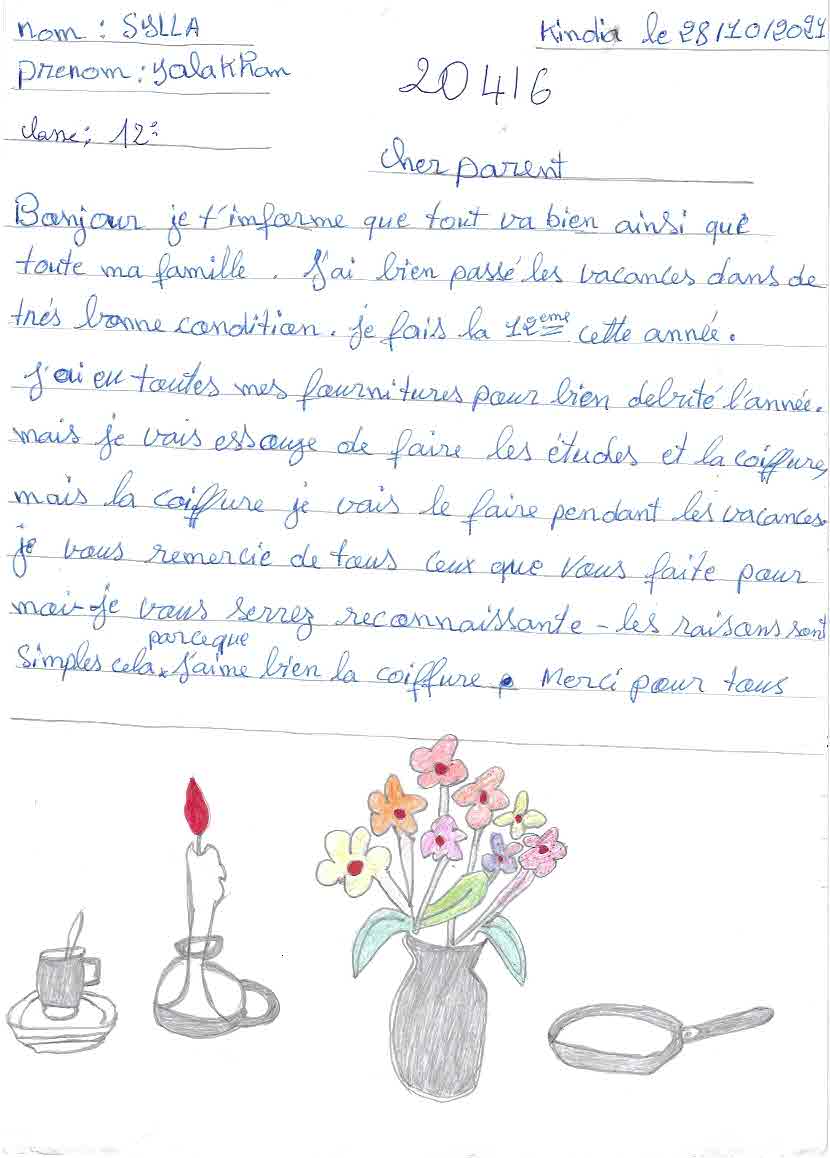 nom : SYLLA
Kindia le 28/10/2021
prenom : Yalakhan
20416
classe; 12e
cher parent
Bonjour je t'informe que tout va bien ainsi que
toute ma famille. J'ai bien passé les vacances dans de
trés bonne condition. je fais la 12eme cette année.
J'ai eu toutes mes fournitures pour bien debuté l'année.
mais je vais essaye de faire les études et la coiffure,
mais la coiffure je vais le faire pendant les vacances.
je vous remercie de tous ceux que vous faite pour
moi-je vous serrez reconnaissante - les raisons sont
simples cela parceque j'aime bien la coiffure. Merci pour tous